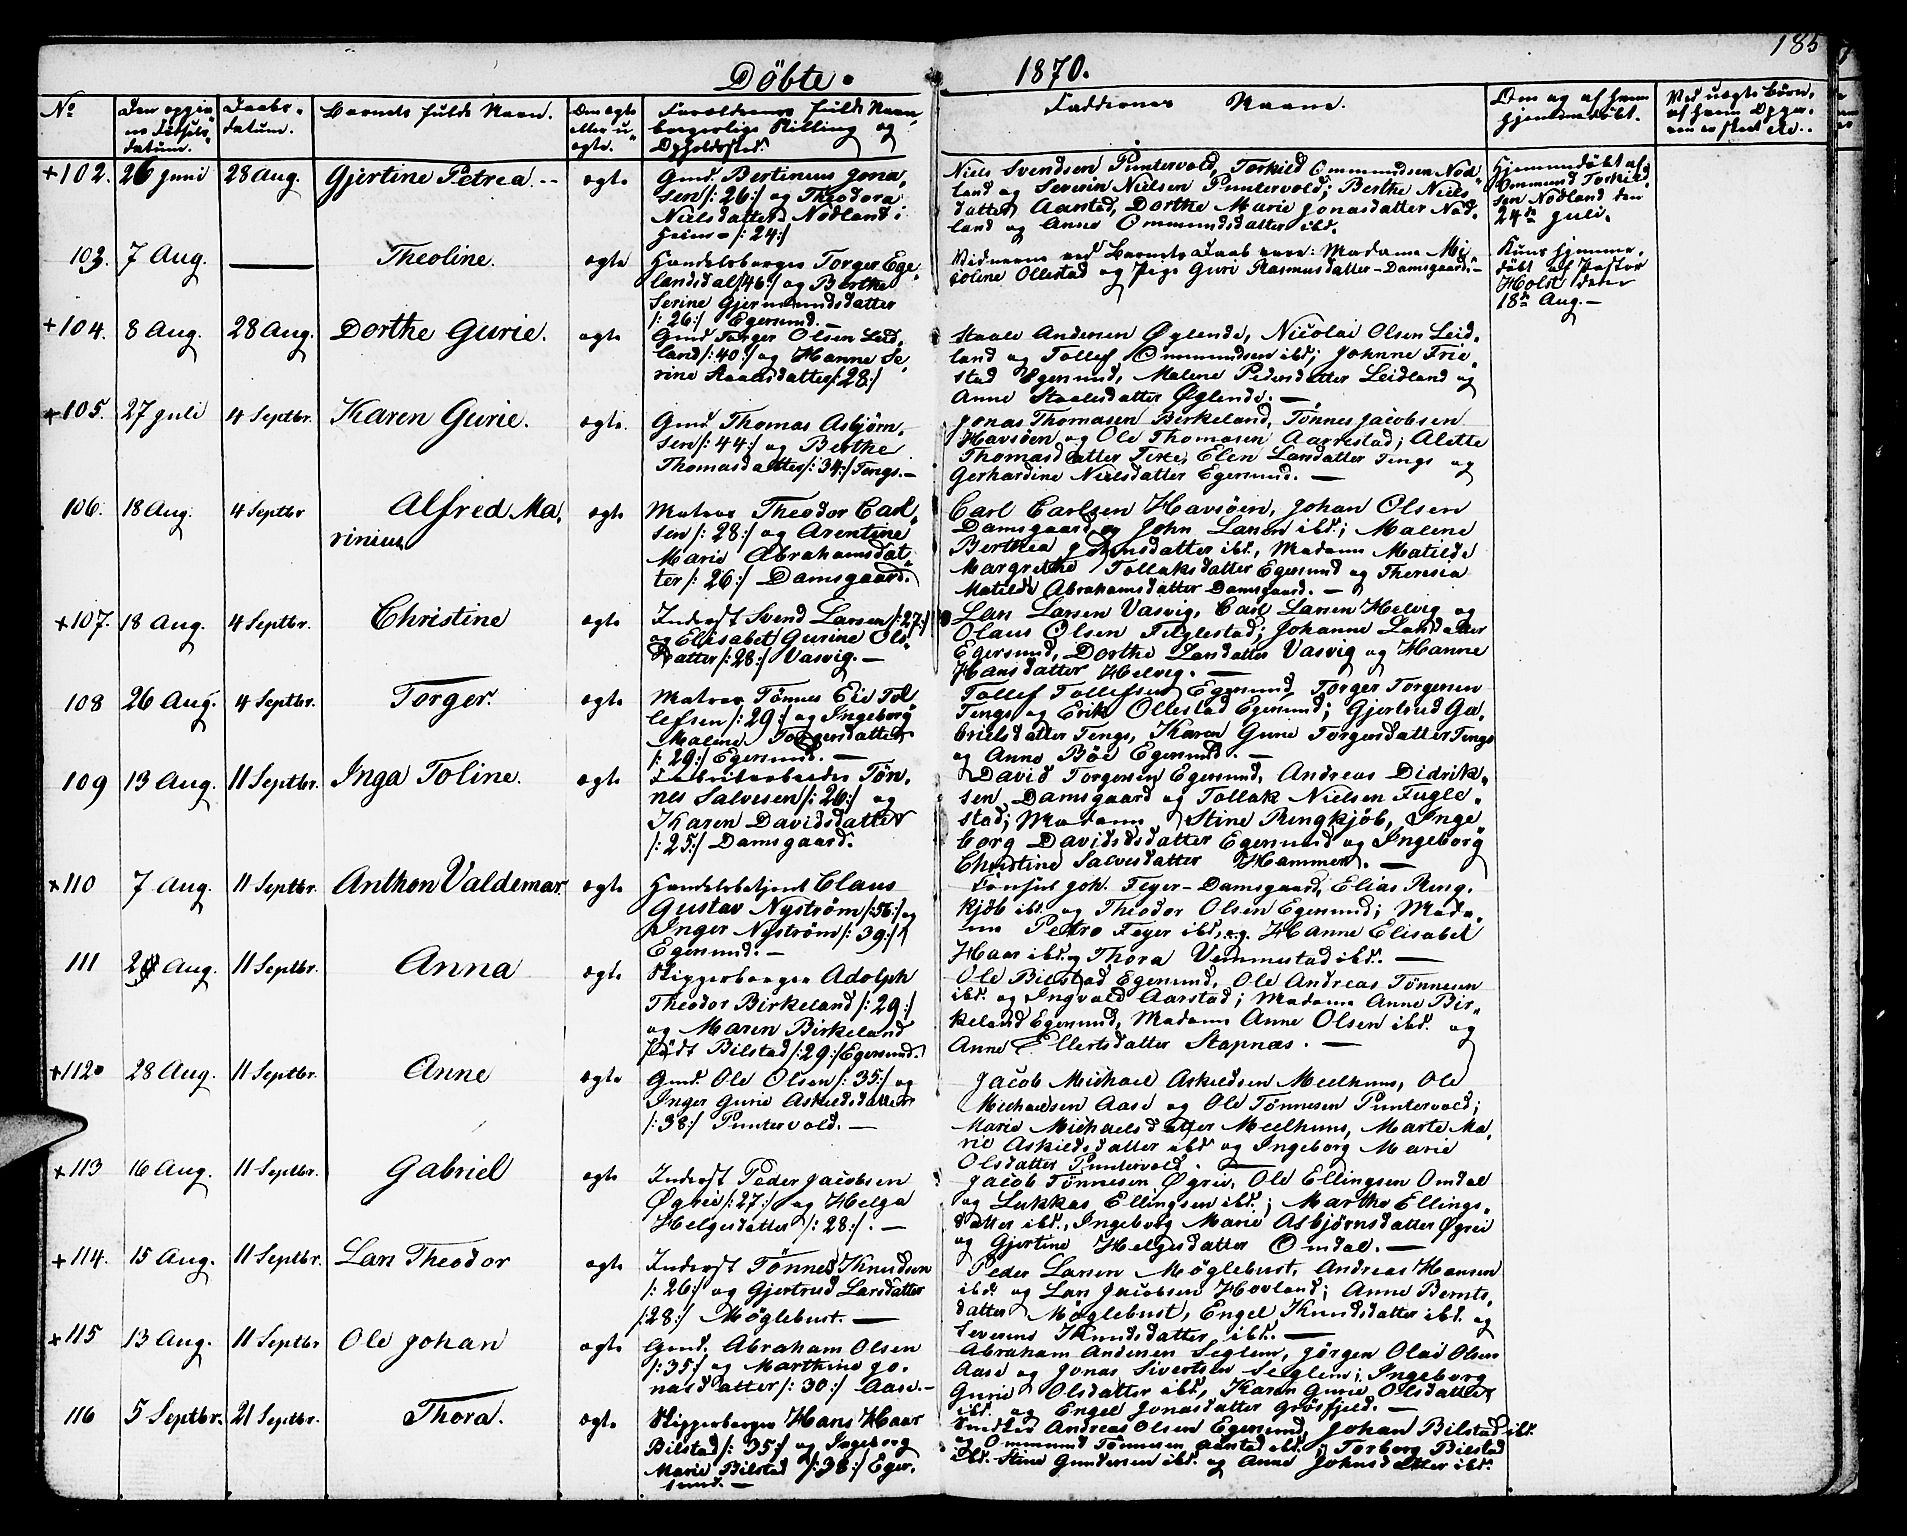 185
Döbte. 1870.
No
Den opgivne Födselsdatum.
Daabsdatum.
Barnets fulde Navn.
Om ægte eller uægte.
Forældrenes fulde Navn, borgerlige Stilling og Opholdssted.
Faddernes Navne.
Om og af hvem hjemmedöbt.
Ved uægte Börn, af hvem Opgaven er skeet etc.
+102. 26 Juni 28 Aug. Gjertine Petrea -- ægte
Gmd. Bertinius Jona-
sen /:26:/ og Theodora
Nielsdatter Nodland i
Heine - /:24:/
Niels Svendsen Puntervold, Torkild Ommundsen Nod-
land og Serwin Nielsen Puntervold; Berthe Niels-
datter Aarstad, Dorthe Marie Jonasdatter Nod-
land og Anne Ommundsdatter ibd.
Hjemmedöbt af
Ommund Torkild-
sen Nodland den
24de Juli.
103. 7 Aug. — Theoline. ægte
Handelsborger Torger Ege-
landsdal /46:/ og Berthe
Serine Gjermundsdatter
/:26:/ Egersund. —
Vidnerne ved Barnets Daab vare: Madame Mi-
coline Ollestad og Pige Guri Rasmusdatter - Damsgaard. -
Kuns hjemme-
döbt af Pastor
Holst den
18de Aug. -
+104. 8 Aug. 28 Aug. Dorthe Gurie. ægte
Gmd Torger Olsen Leid-
land /:40:/ og Hanne Se-
rine Staalesdatter /:28:/
Staale Andersen Øglende, Nicolai Olsen Leid-
land og Tollef Ommundsen ibd; Johnne Frie-
stad Egersund, Malene Pedersdatter Leidland og
Anne Staalesdatter Øglende. —
+105. 27 Juli 4 Septbr. Karen Gurie. ægte.
Gmd. Thomas Asbjørn-
sen /:44:/ og Berthe
Thomasdatter /:34:/ Tengs. -
Jonas Thomasen Birkeland, Tønnes Jacobsen
Havsöen og Ole Thomasen Aarrestad; Alette
Thomasdatter Terte, Elen Larsdatter Tengs og
Gerhardine Nielsdatter Egersund. —
106. 18 Aug. 4 Septbr Alfred Ma-
rinius ægte
Matros Theodor Carl-
sen /:28:/ og Arentine
Marie Abrahamsdat-
ter /:26:/ Damsgaard.
Carl Carlsen Havsöen, Johan Olsen
Damsgaard og John Larsen ibd.; Malene
Berthea Johnsdatter ibd., Madame Matilde
Margrethe Tollaksdatter Egersund og Theresia
Matilde Abrahamsdatter Damsgaard. —
+107. 18 Aug. 4 Septbr. Christine ægte
Inderst Svend Larsen /:27:/
og Elisabet Gurine Ols-
datter /:28:/ Vasvig. —
Lars Larsen Vasvig, Carl Larsen Helvig og
Olaus Olsen Feylestad; Johanne Larsdatter
Egersund, Dorthe Larsdatter Vasvig og Hanne
Hansdatter Helvig. —
108 26 Aug. 4 Septbr. Torger. ægte
Matros Tönnes Eie Tol-
lefsen /:29:/ og Ingeborg
Malene Torgersdatter
/:29:/ Egersund. —
Tollef Tollefsen Egersund, Torger Torgersen
Tengs og Erik Ollestad Egersund; Gjertrud Ga-
brielsdatter Tengs, Karen Gurie Torgersdatter Tengs
og Anne Böe Egersund. —
109 13 Aug. 11 Septbr. Inga Toline. ægte
Fabrikarbeider Tön-
nes Salvesen /:26:/ og
Karen Davidsdatter
/:25:/ Damsgaard.
David Torgersen Egersund, Andreas Didrik-
sen Damsgaard og Tollak Nielsen Fugle-
stad; Madame Stine Ringkjöb, Inge
borg Davidsdatter Egersund og Ingeborg
Christine Salvesdatter Hammer. —
+110 7 Aug. 11 Septbr. Anthon Valdemar. ægte
Handelsbetjent Claus
Gustav Nyström /:56:/ og
Inger Nyström /:39:/
Egersund. -
Konsul Joh. Feyer - Damsgaard, Elias Ring-
kjöb ibd. og Theodor Olsen Egersund; Mada-
me Petra Feyer ibd., og Hanne Elisabet
Haar ibd. og Thora Vemmestad ibd. —
111 Aug. 11 Septbr. Anna ægte
Skipperborger Adolph
Theodor Birkeland /:29:/
og Maren Birkeland
födt Bilstad /:29:/ Egersund.
Ole Bilstad Egersund, Ole Andreas Tönnesen
ibd. og Ingvald Aarstad; Madame Anne Bir-
keland Egersund, Madame Anne Olsen ibd. og
Anne Ellertsdatter Stapnæs. —
+112. 28 Aug. 11 Septbr. Anne ægte
Gmd. Ole Olsen /:35:/ og
Inger Gurie Askildsdatter
/:38:/ Puntervold. —
Jacob Michael Askildsen Meelhuus, Ole
Michaelsen Aase og Ole Tönnesen Puntervold;
Marie Michaelsdatter Meelhuus, Marte Ma-
rie Askildsdatter ibd og Ingeborg Marie
Olsdatter Puntervold. —
+113 16 Aug. 11 Septbr. Gabriel ægte
Inderst Peder Jacobsen
Øgrei /:27:/ og Helga
Helgesdatter /:28:/. —
Jacob Tönnesen Øgrei, Ole Ellingsen Omdal
og Lukkas Ellingsen ibd.; Marthe Ellings-
datter ibd., Ingeborg Marie Asbjørnsdatter Øgrei
og Gjertine Helgesdatter Omdal. —
+114. 15 Aug. 11 Septbr. Lars Theodor ægte
Inderst Tönnes Knudsen
/:26:/ og Gjertrud Larsdatter
/28:/ Möglebust. —
Peder Larsen Möglebust, Andreas Hansen
ibd. og Lars Jacobsen Hovland; Anne Bernts-
datter Möglebust, Engel Knudsdatter ibd. og
Severine Knudsdatter ibd. —
+115 13 Aug. 11 Septbr Ole Johan ægte
Gmd. Abraham Olsen
/:35/ og Marthine Jo-
nasdatter /:30:/ Aase. -
Abraham Andersen Seglem, Jörgen Olai Olsen
Aase og Jonas Sivertsen Seglem; Ingeborg
Gurie Olsdatter ibd., Karen Gurie Olsdatter
ibd. og Engel Jonasdatter Grösfjeld. —
116 5 Septbr. 21 Septbr. Thora. ægte
Skipperborger Hans Haar
Bilstad /:35:/ og Ingeborg
Marie Bilstad /:38:/ Eger-
sund. —
Andreas Olsen Egersund, Johan Bilstad ibd.
og Ommund Tönnesen Aarstad ibd.; Torborg Bilstad
ibd. Stine Gundersen ibd. og Anne Johnsdatter ibd.